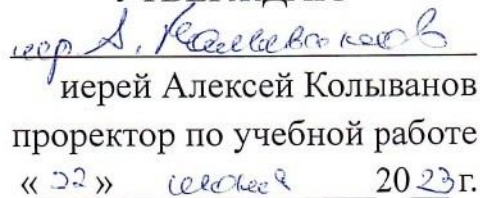 УТВЕРЖДАЮ
иер. А. Колыванов
иерей Алексей Колыванов
проректор по учебной работе
« 22 » июня 2023 г.